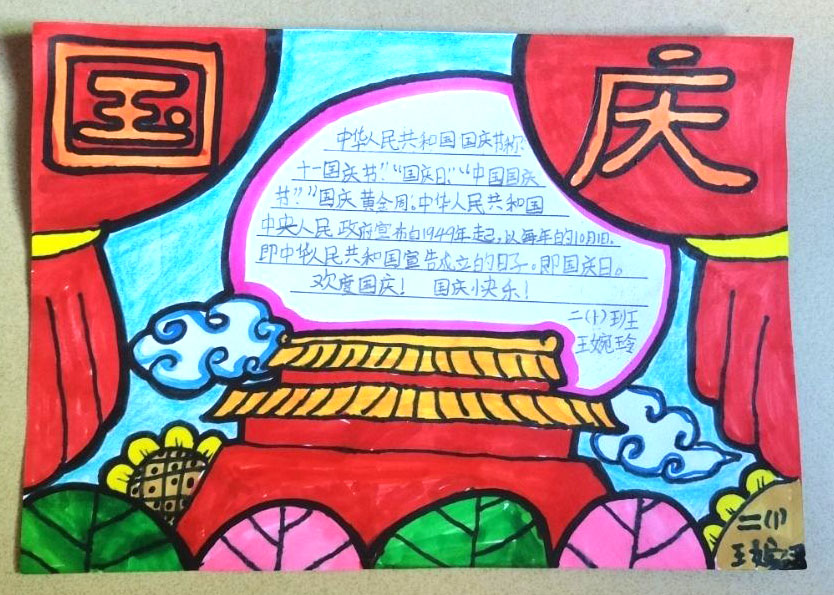 国庆
中华人民共和国国庆节称?
十一国庆节”“国庆日”“中国国庆
节”“国庆黄金周。中华人民共和国
中央人民政府宣布自1949年起,以每年的10月1日,
即中华人民共和国宣告成立的日子。即国庆日。
欢度国庆! 国庆快乐!
二(1)班
王婉玲
二(1)
王婉